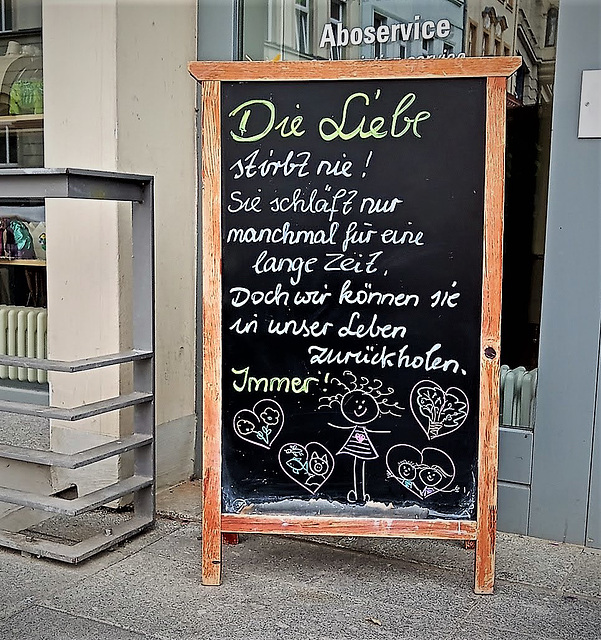 Aboservice
Die Liebe
stirbt nie!
Sie schläft nur
manchmal für eine
lange Zeit,
Doch wir können sie
in unser Leben
zurückholen.
Immer!